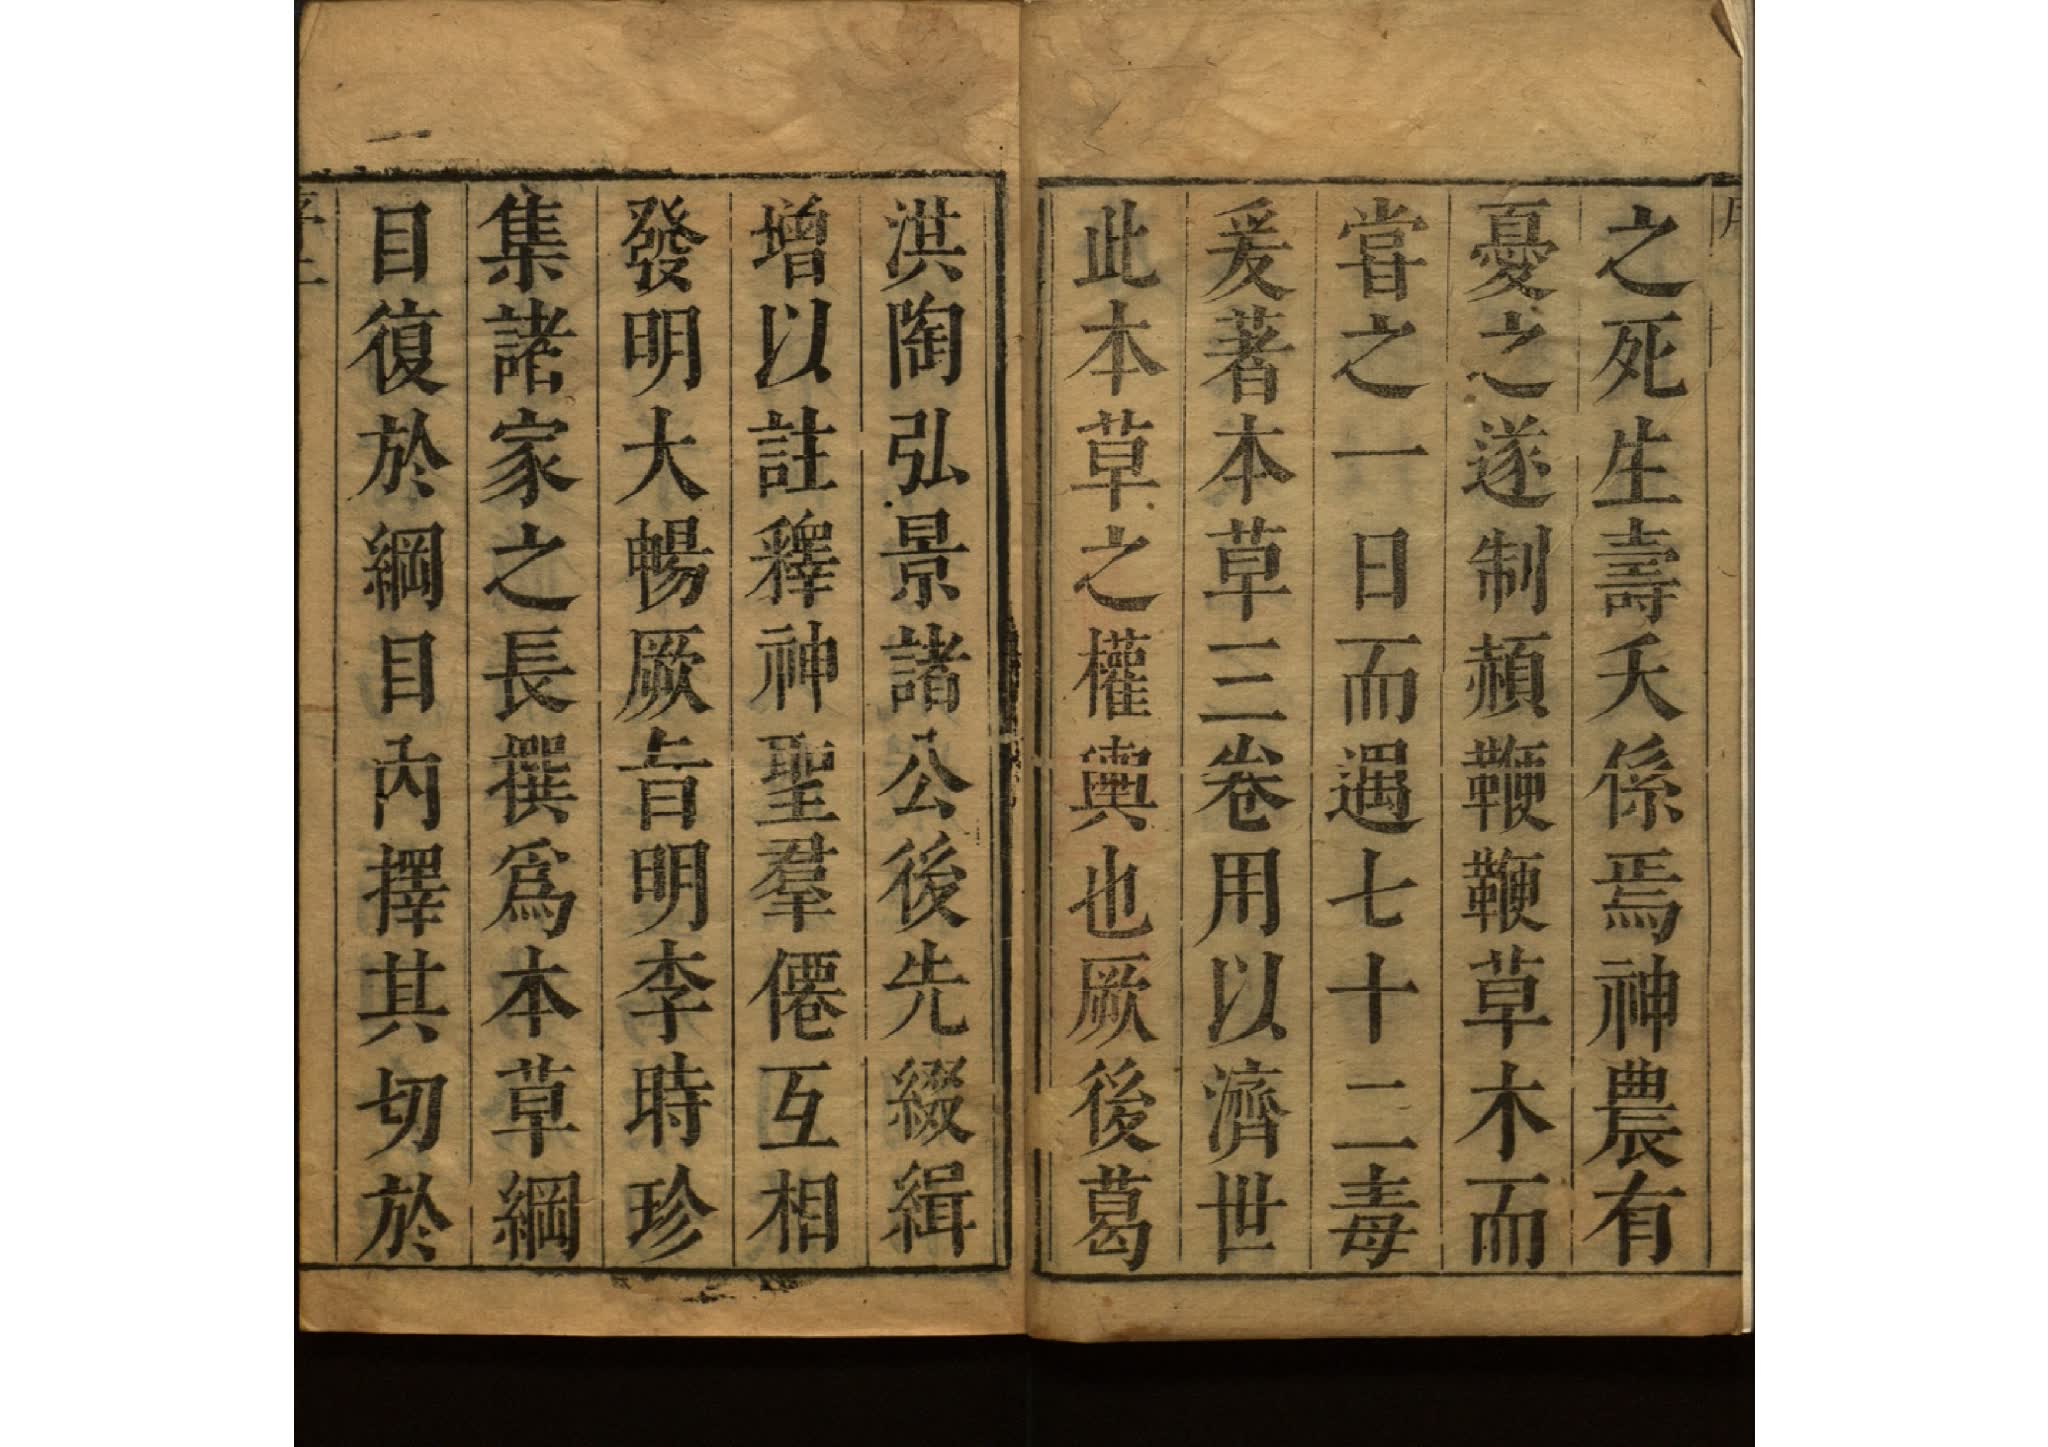 之死生壽夭係焉神農有
憂之遂制頳鞭鞭草木而
嘗之一日而遇七十二毒
爰著本草三卷用以濟世
此本草之權輿也厥後葛
洪陶弘景諸公後先綴緝
增以註釋神聖羣僊互相
發明大暢厥旨明李時珍
集諸家之長撰爲本草綱
目復於綱目內擇其切於